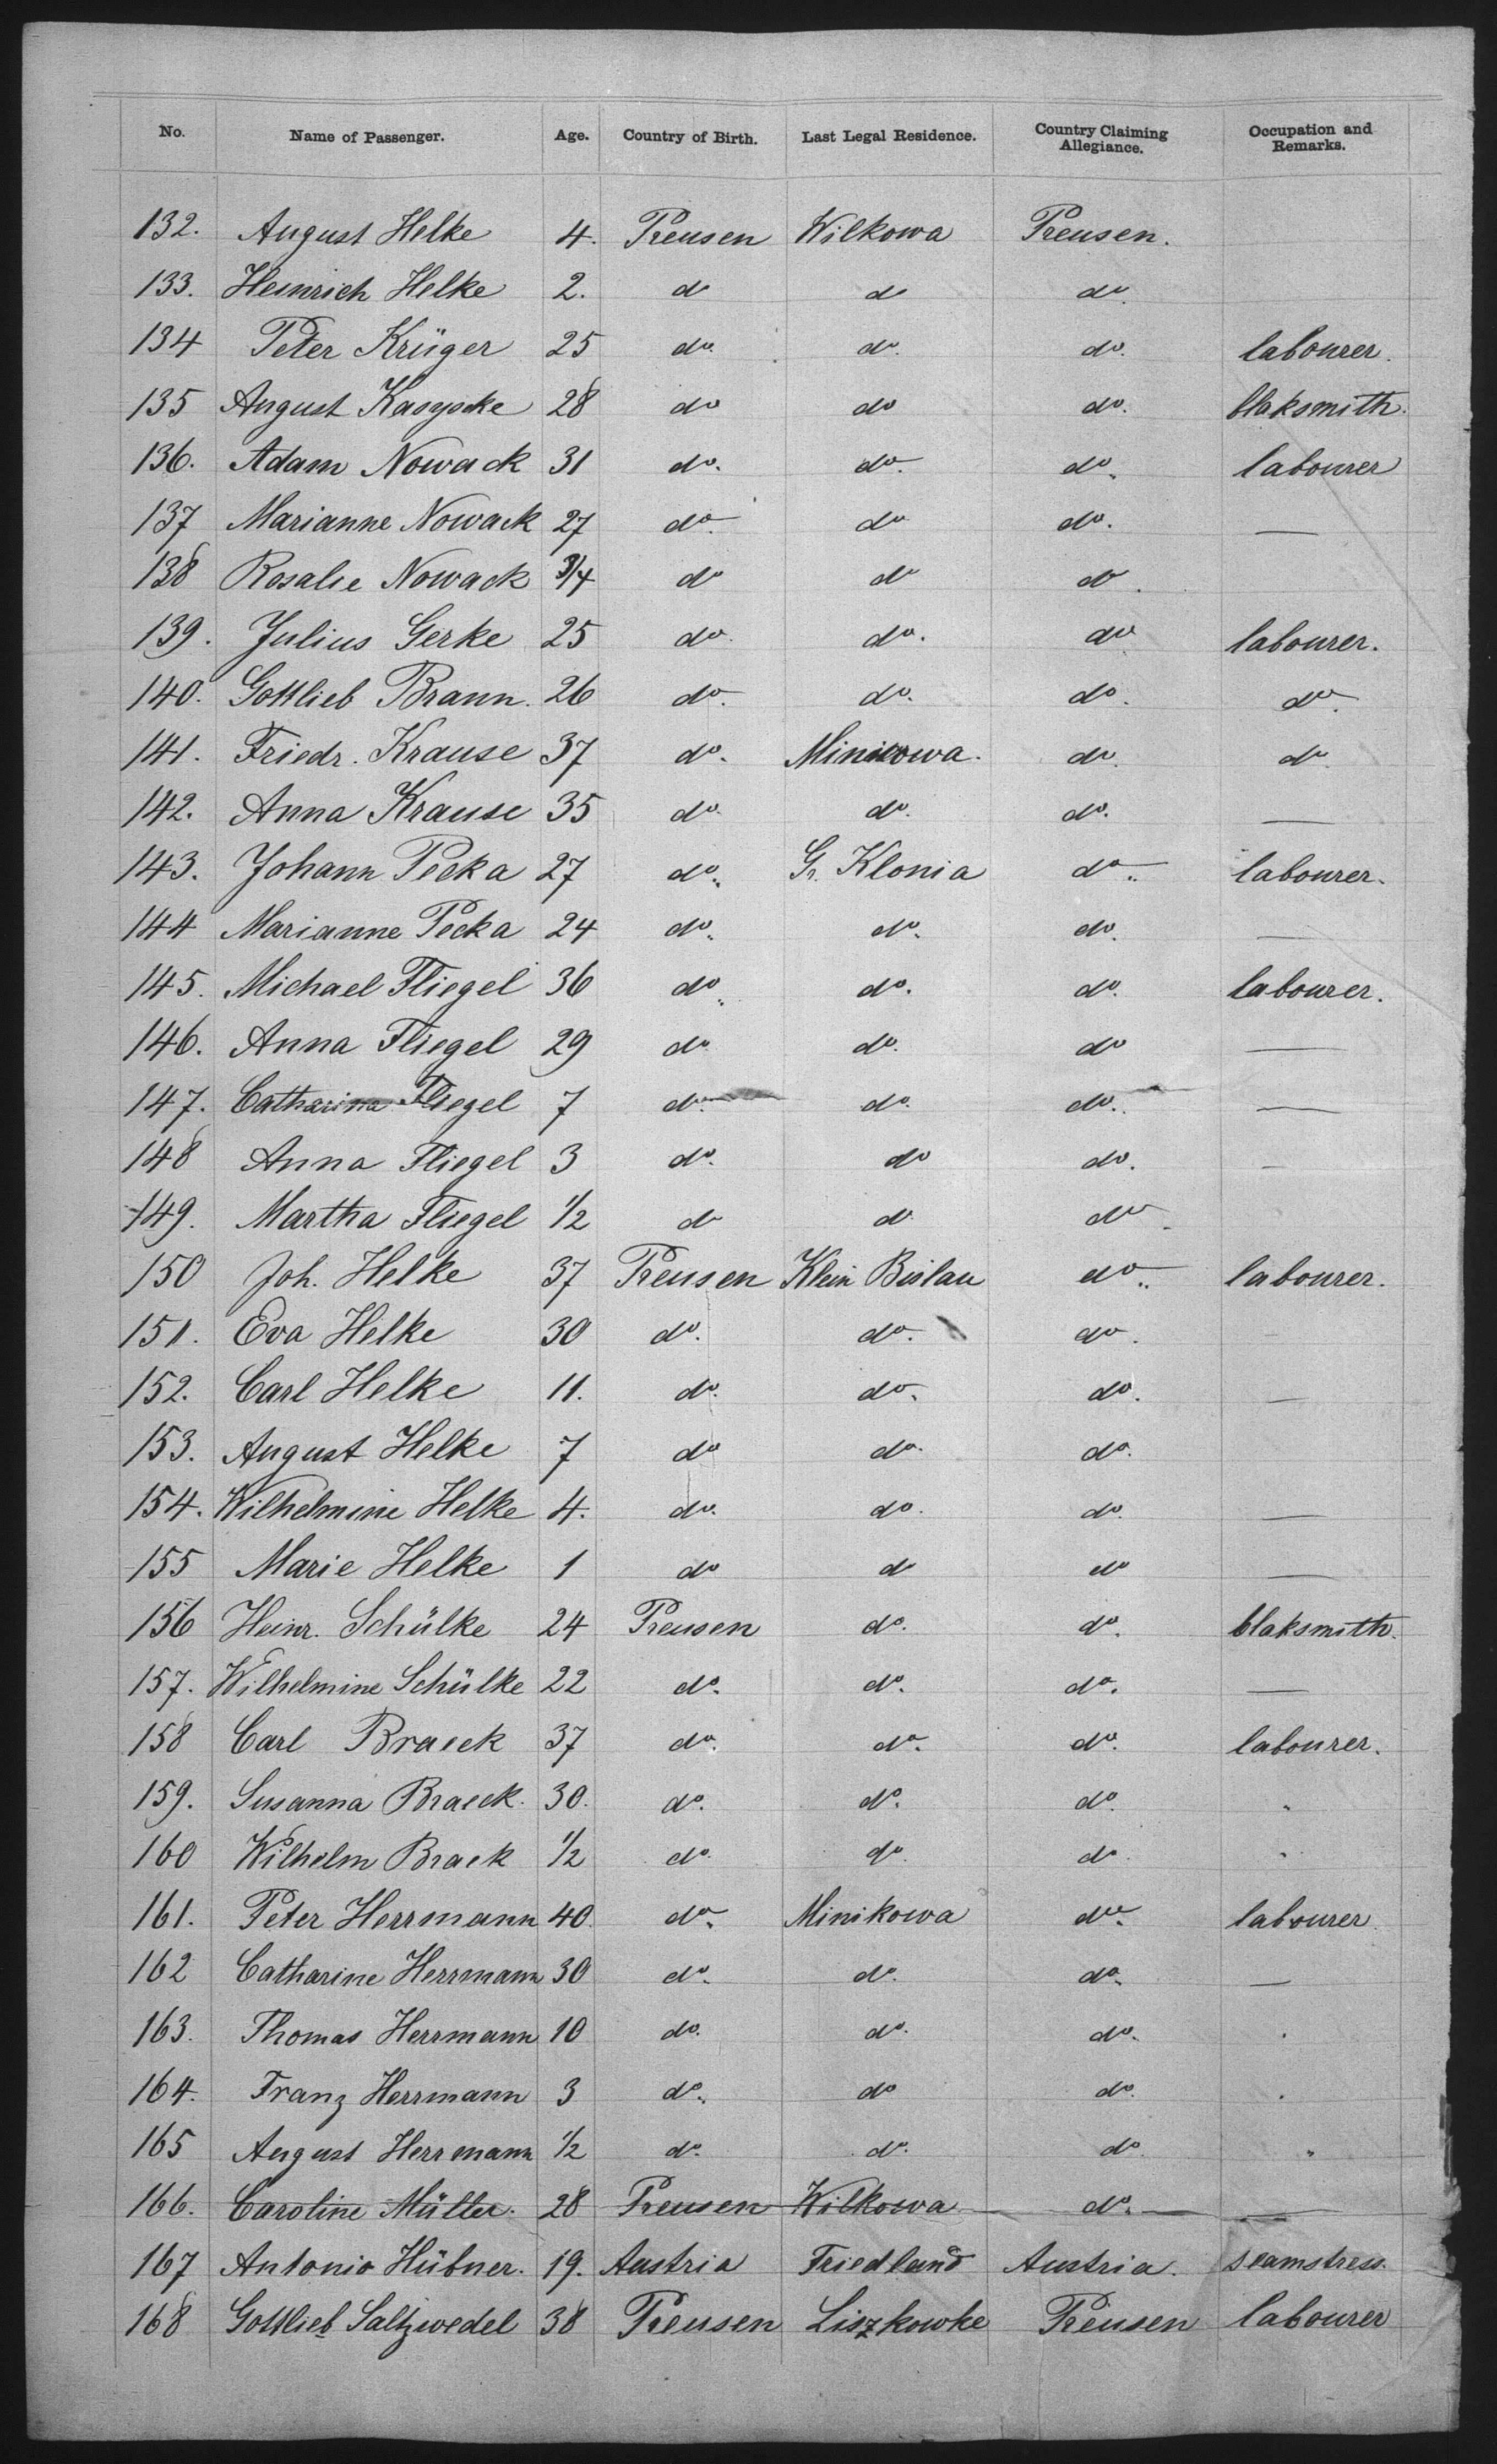 No. Name of Passenger. Age. Country of Birth. Last Legal Residence. Country Claiming Allegiance. Occupation and Remarks.
132. August Helke 4. Preusen Wilkowa Preusen.
133. Heinrich Helke 2. do do do
134 Peter Krüger 25 do. do. do. labourer.
135 August Kasyscke 28 do do do. blaksmith.
136. Adam Nowack 31 do. do. do. labourer
137 Marianne Nowack 27 do. do do. —
138 Rosalie Nowack 3/4 do do do.
139. Julius Gerke 25 do. do. do labourer.
140. Gottlieb Braun. 26 do. do. do. do.
141. Friedr. Krause 37 do. Minikowa. do. do.
142. Anna Krause 35 do. do. do. —
143. Johann Pecka 27 do. Gr. Klonia do. labourer.
144 Marianne Pecka 24 do. do. do. —
145. Michael Fliegel 36 do. do. do. labourer.
146. Anna Fliegel 29 do do. do —
147. Catharina Fliegel 7 do. do. do. —
148 Anna Fliegel 3 do. do do. —
149. Martha Fliegel 1/2 do do do.
150 Joh. Helke 37 Preusen Klein Bislau do. labourer.
151. Eva Helke 30 do. do. do.
152. Carl Helke 11. do. do. do. —
153. August Helke 7 do do. do.
154. Wilhelmine Helke 4. do. do. do. —
155 Marie Helke 1 do do do —
156 Heinr. Schülke 24 Preusen do. do. blaksmith.
157. Wilhelmine Schülke 22 do. do. do. —
158 Carl Braeck 37 do. do. do. labourer.
159. Susanna Braeck. 30. do. do. do. "
160 Wilhelm Braek 1/2 do. do. do. "
161. Peter Herrmann 40. do. Minikowa do. labourer.
162 Catharine Herrmann 30 do. do. do. —
163. Thomas Herrmann 10 do. do. do. .
164. Franz Herrmann 3 do. do do. .
165 August Herrmann 1/2 do. do. do. "
166. Caroline Müller. 28 Preusen Wilkowa do. —
167 Antonio Hübner. 19. Austria Friedland Austria. seamstress.
168 Gottlieb Saltzwedel 38 Preusen Liszkowke Preusen labourer